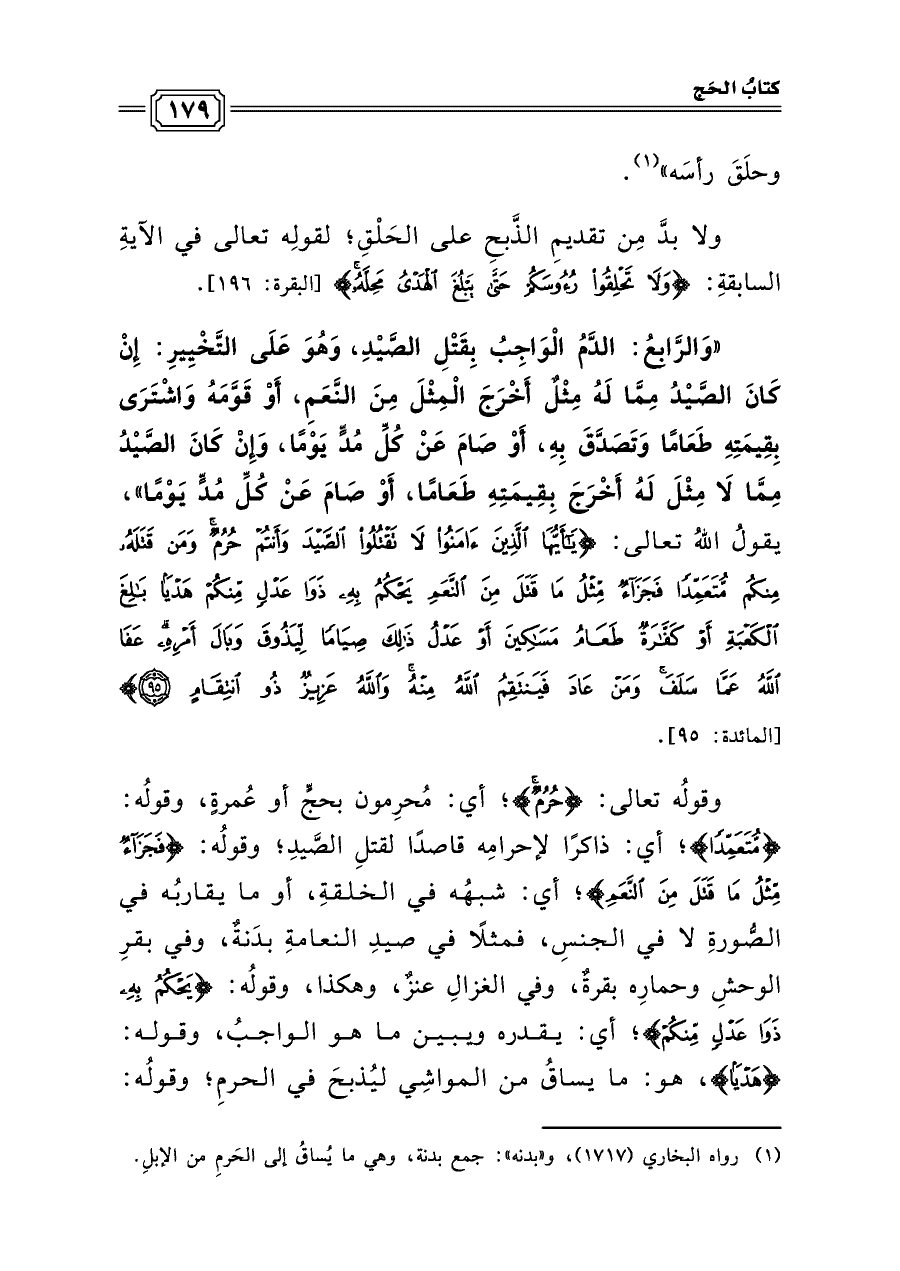 كتابُ الحَج
١٧٩
وحلَقَ رأسَه»(١).
ولا بدَّ مِن تقديمِ الذَّبحِ على الحَلْقِ؛ لقولِه تعالى في الآيةِ
السابقةِ: ﴿وَلَا تَحۡلِقُواْ رُءُوسَكُمۡ حَتَّىٰ يَبۡلُغَ ٱلۡهَدۡيُ مَحِلَّهُۥۚ﴾ [البقرة: ١٩٦].
«وَالرَّابِعُ: الدَّمُ الْوَاجِبُ بِقَتْلِ الصَّيْدِ، وَهُوَ عَلَى التَّخْيِيرِ: إِنْ
كَانَ الصَّيْدُ مِمَّا لَهُ مِثْلٌ أَخْرَجَ الْمِثْلَ مِنَ النَّعَمِ، أَوْ قَوَّمَهُ وَاشْتَرَى
بِقِيمَتِهِ طَعَامًا وَتَصَدَّقَ بِهِ، أَوْ صَامَ عَنْ كُلِّ مُدٍّ يَوْمًا، وَإِنْ كَانَ الصَّيْدُ
مِمَّا لَا مِثْلَ لَهُ أَخْرَجَ بِقِيمَتِهِ طَعَامًا، أَوْ صَامَ عَنْ كُلِّ مُدٍّ يَوْمًا»،
يقولُ اللهُ تعالى: ﴿يَٰٓأَيُّهَا ٱلَّذِينَ ءَامَنُواْ لَا تَقۡتُلُواْ ٱلصَّيۡدَ وَأَنتُمۡ حُرُمٞۚ وَمَن قَتَلَهُۥ
مِنكُم مُّتَعَمِّدٗا فَجَزَآءٞ مِّثۡلُ مَا قَتَلَ مِنَ ٱلنَّعَمِ يَحۡكُمُ بِهِۦ ذَوَا عَدۡلٖ مِّنكُمۡ هَدۡيَۢا بَٰلِغَ
ٱلۡكَعۡبَةِ أَوۡ كَفَّٰرَةٞ طَعَامُ مَسَٰكِينَ أَوۡ عَدۡلُ ذَٰلِكَ صِيَامٗا لِّيَذُوقَ وَبَالَ أَمۡرِهِۦۗ عَفَا
ٱللَّهُ عَمَّا سَلَفَۚ وَمَنۡ عَادَ فَيَنتَقِمُ ٱللَّهُ مِنۡهُۚ وَٱللَّهُ عَزِيزٞ ذُو ٱنتِقَامٍ ٩٥﴾
[المائدة: ٩٥].
وقولُه تعالى: ﴿حُرُمٞۚ﴾؛ أي: مُحرِمون بحجٍّ أو عُمرةٍ، وقولُه:
﴿مُّتَعَمِّدٗا﴾؛ أي: ذاكرًا لإحرامِه قاصدًا لقتلِ الصَّيدِ؛ وقولُه: ﴿فَجَزَآءٞ
مِّثۡلُ مَا قَتَلَ مِنَ ٱلنَّعَمِ﴾؛ أي: شبهُه في الخلقةِ، أو ما يقاربُه في
الصُّورةِ لا في الجنسِ، فمثلًا في صيدِ النعامةِ بدَنةٌ، وفي بقرِ
الوحشِ وحمارِه بقرةٌ، وفي الغزالِ عنزٌ، وهكذا، وقولُه: ﴿يَحۡكُمُ بِهِۦ
ذَوَا عَدۡلٖ مِّنكُمۡ﴾؛ أي: يقدره ويبين ما هو الواجبُ، وقوله:
﴿هَدۡيَۢا﴾، هو: ما يساقُ من المواشِي ليُذبحَ في الحرمِ؛ وقولُه:
(١) رواه البخاري (١٧١٧)، و«بدنه»: جمع بدنة، وهي ما يُساقُ إلى الحَرمِ من الإبلِ.